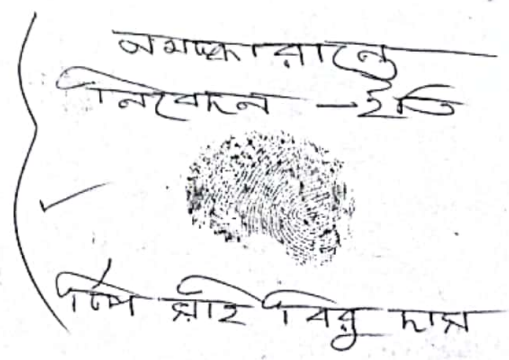 নমস্কারান্তে
নিবেদন - ইতি
টিপ সহি বিরু দাস